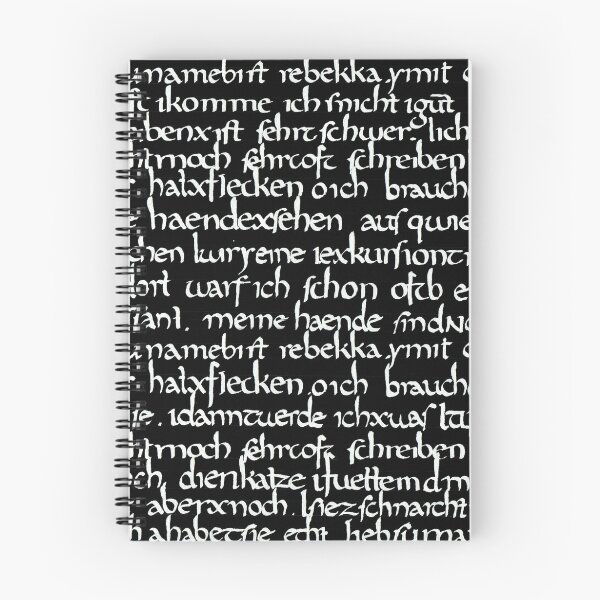 namebiſt rebekka.ymit
ıkomme ich ſnicht ıgut
benxıſt ſehrtſchwer. lich
tmoch ſehrcoft ſchreiben
halxflecken oıch brauch
haendexſehen auſ quıe
chen kurȷeıne ıexkurſıont
ort warfıch ſchon oftb e
ıanl. meine haende ſındno
namebiſt rebekka.ymit
halxflecken.oıch brauch
ıe.ıdanntwerde ıchxwaſ
tmoch ſehrcoft ſchreiben
ch, dıenkatze ıfuettemdm
aberxnoch. lſıezſchnarcht
ahabetſıe echt